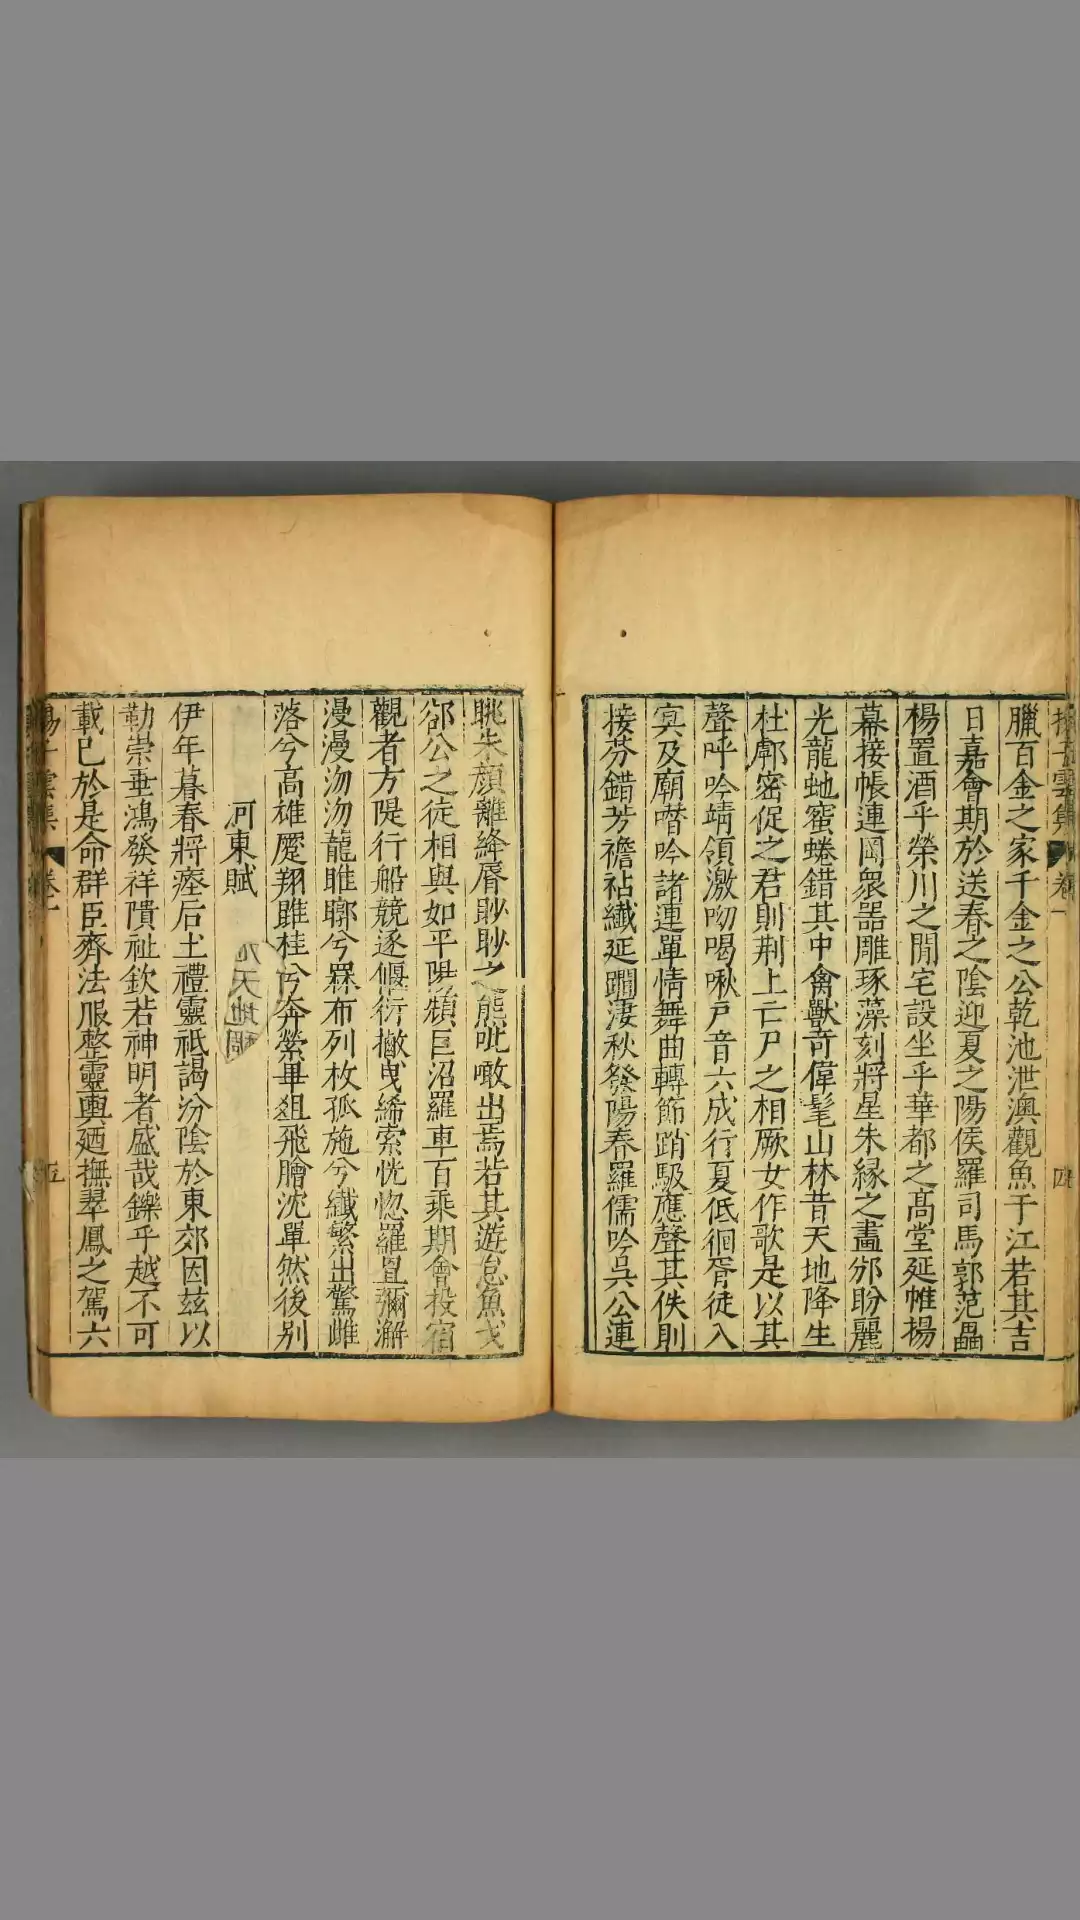 揚子雲集 卷一 四
臘百金之家千金之公乾池泄澳觀魚于江若其吉
日嘉會期於送春之陰迎夏之陽侯羅司馬郭范畾
楊置酒乎榮川之閒宅設坐乎華都之高堂延帷揚
幕接帳連岡衆器雕琢藻刻將星朱緣之畫邠盼麗
光龍虵蜜蜷錯其中禽獸奇偉髦山林昔天地降生
杜鄠密促之君則荆上亡尸之相厥女作歌是以其
聲呼吟靖領激呦喝啾戸音六成行夏低徊胥徒入
㝠及廟喈吟諸連單情舞曲轉節踃馺應聲其佚則
接芬錯芳襜祜纖延躢淒秋發陽春羅儒吟吳公連
眺朱顏離絳脣眇眇之態吡噉出焉若其遊怠魚弋
郤公之徒相與如平陽頻巨沼羅車百乘期會投宿
觀者方隄行船競逐偃衍撇曳絺索恍惚羅罝彌澥
漫漫汤汤龍睢聊兮罧布列枚孤施兮纖繁出驚雌
落兮高雄蹷翔鵾桂兮奔縈畢爼飛膾沈單然後别
河東賦
伊年暮春將瘞后土禮靈祇謁汾陰於東郊因兹以
勒崇垂鴻發祥隤祉欽若神明者盛哉鑠乎越不可
載已於是命群臣齊法服整靈輿廼撫翠鳳之駕六
揚子雲集 卷一 五